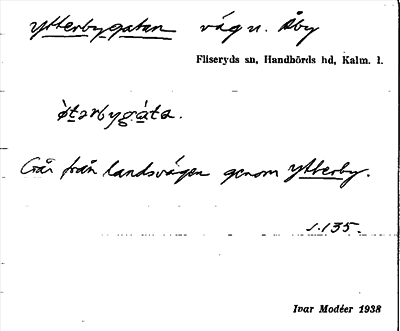 Ytterbygatan väg u. Åby
Fliseryds sn, Handbörds hd, Kalm. l.
ỳtərbygàta.
Går från landsvägen genom Ytterby.
s. 135.
Ivar Modéer 1938